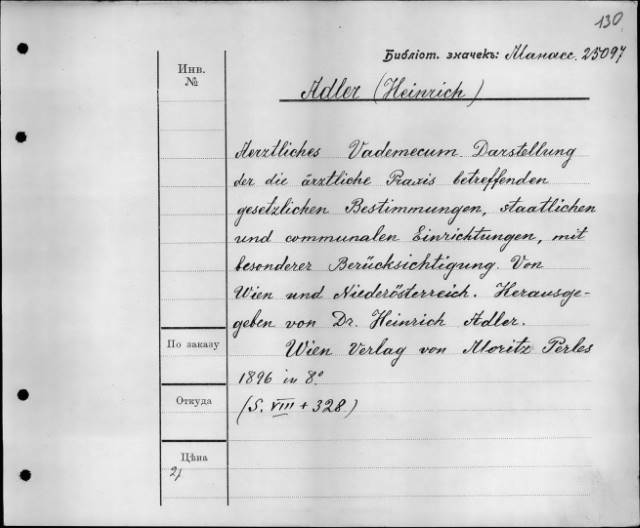 130
Библіот. значекъ: Манасс. 25097
Инв.
№
Adler (Heinrich)
Aerztliches Vademecum. Darstellung
der die ärztliche Praxis betreffenden
gesetzlichen Bestimmungen, staatlichen
und communalen Einrichtungen, mit
besonderer Berücksichtigung. Von
Wien und Niederösterreich. Herausge-
geben von Dr. Heinrich Adler.
По заказу
Wien Verlag von Moritz Perles
1896 in 8.º
Откуда
(S. VIII + 328.)
Цѣна